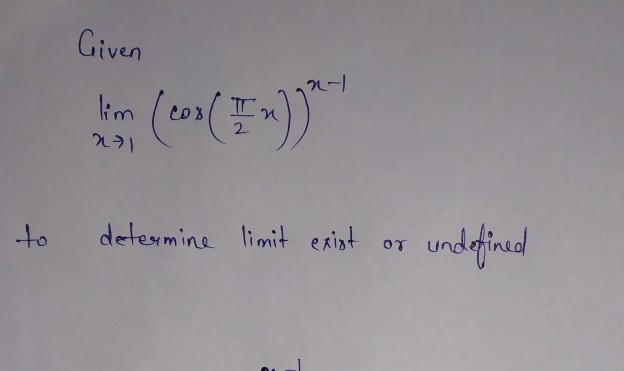 Given
lim x→1 (cos(π/2 x))^x-1
to determine limit exist or undefined